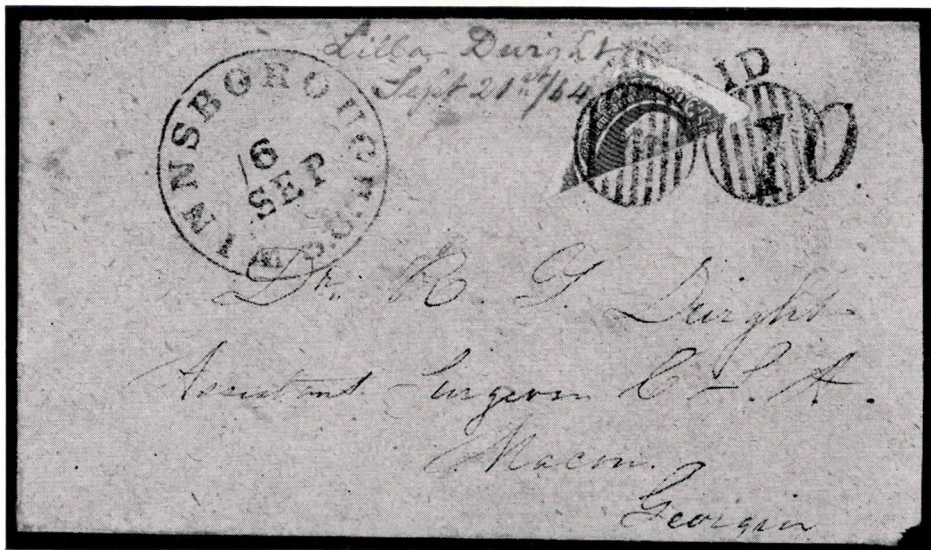 Lilla Dwight
Sept 21st/64
WINNSBOROUGH. S.C.
16
SEP
ID
10
Dr. R. G. Dwight
Assistant Surgeon C. S. A.
Macon.
Georgia